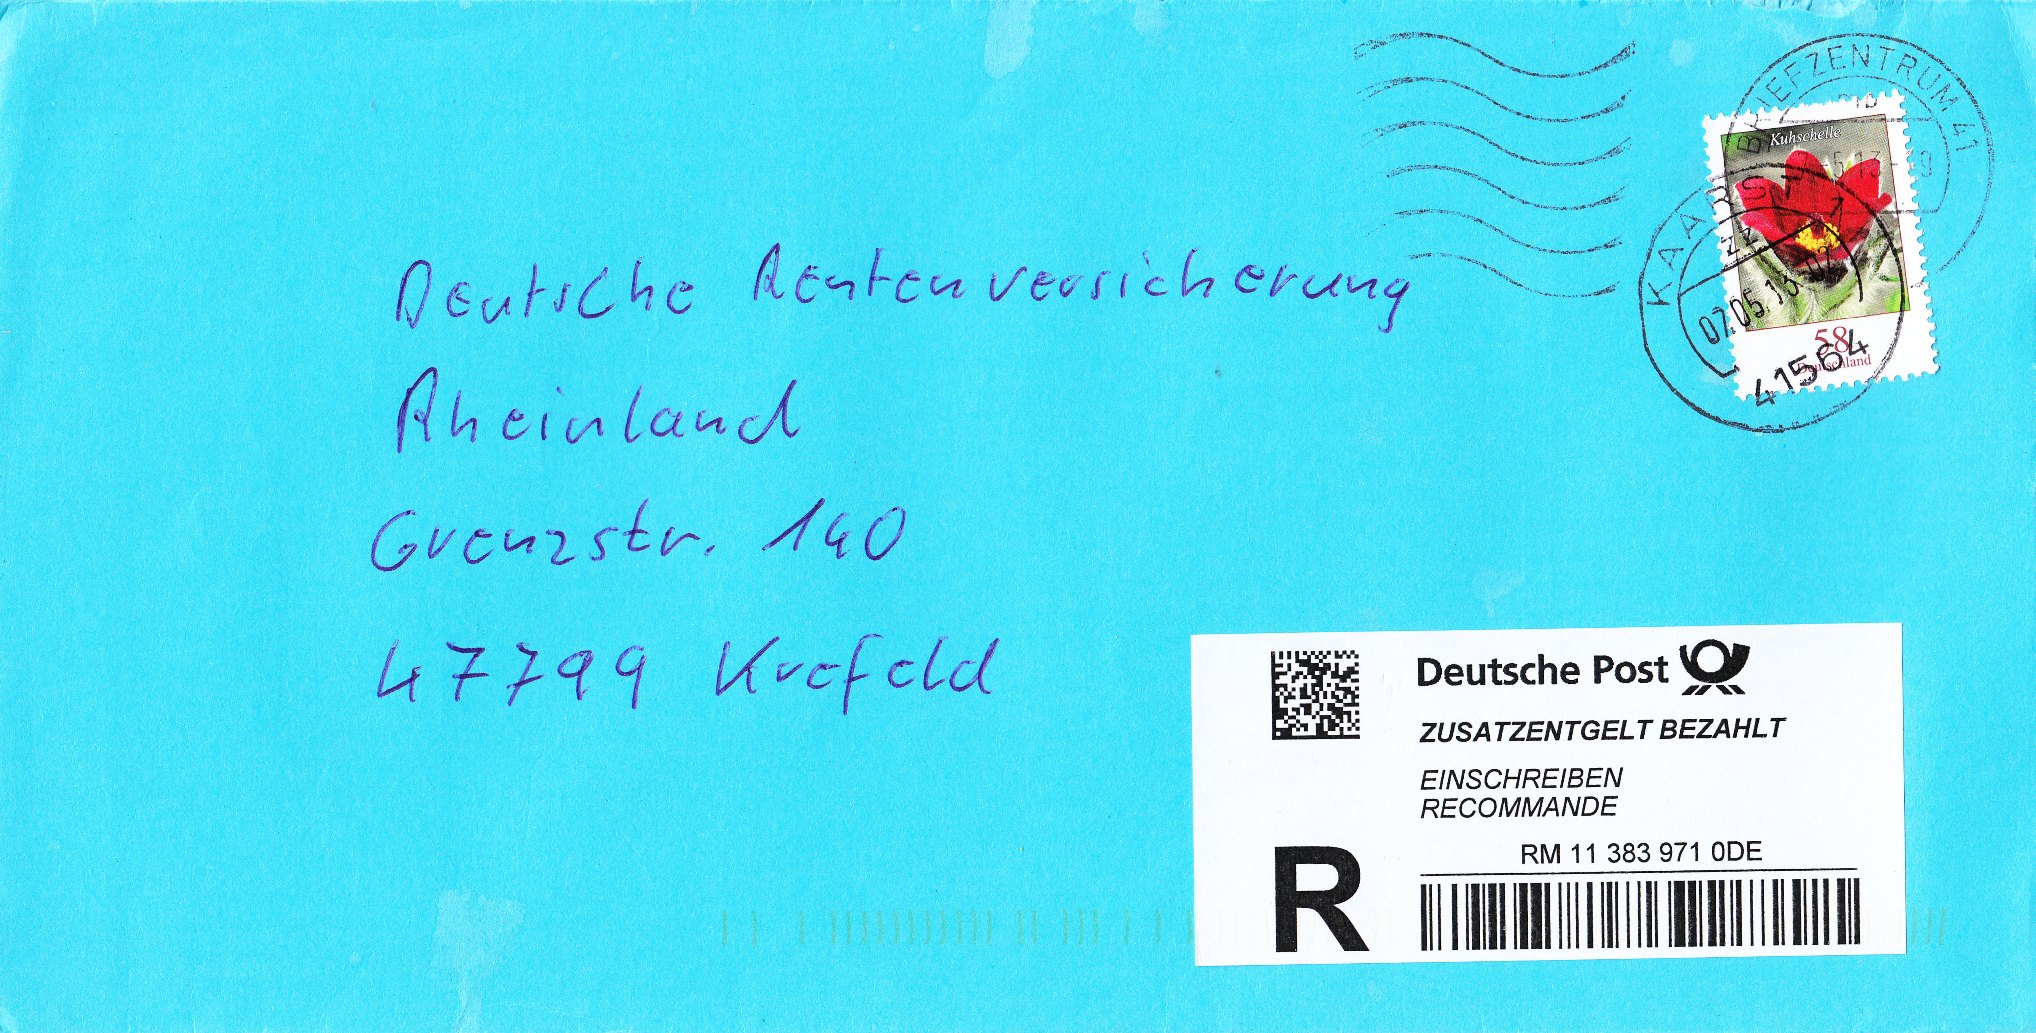 BRIEFZENTRUM 41
Kuhschelle
KAARST 1
zz
07.05.13
41564
58
Deutschland
Deutsche Rentenversicherung
Rheinland
Grenzstr. 140
47799 Krefeld
Deutsche Post
ZUSATZENTGELT BEZAHLT
EINSCHREIBEN
RECOMMANDE
RM 11 383 971 0DE
R